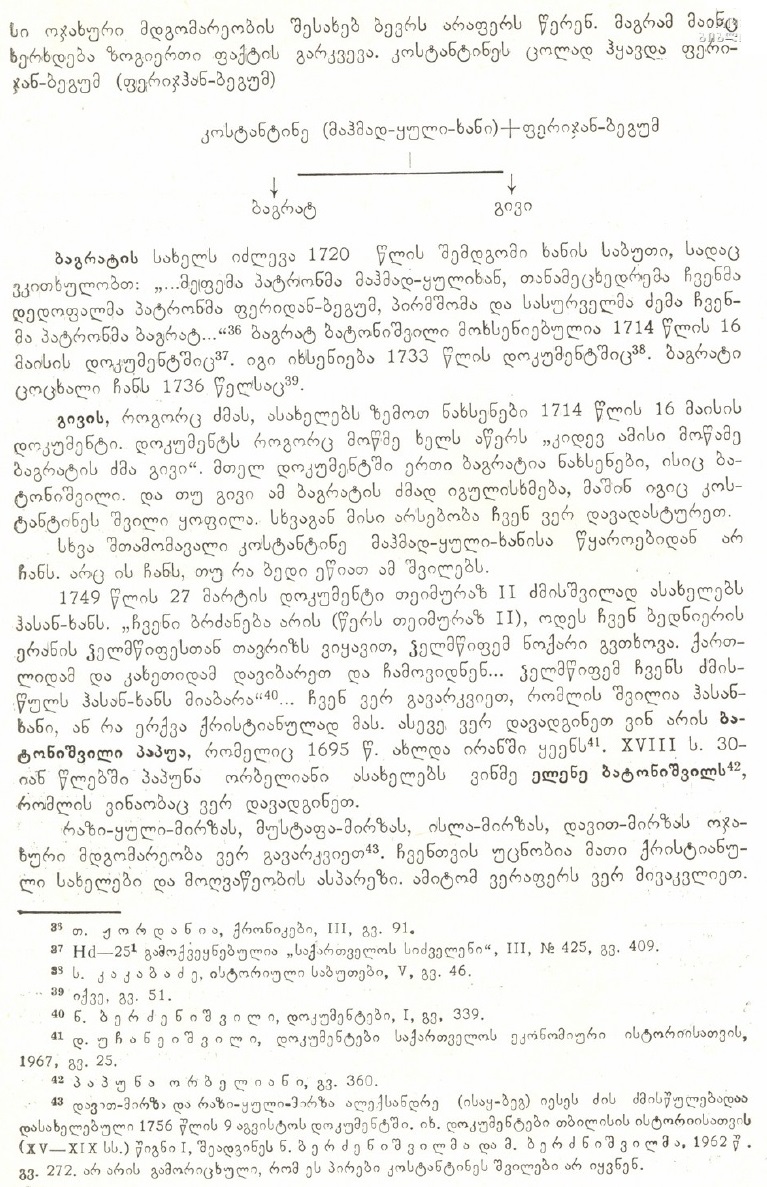 სი ოჯახური მდგომარეობის შესახებ ბევრს არაფერს წერენ. მაგრამ მაინც
ხერხდება ზოგიერთი ფაქტის გარკვევა. კოსტანტინეს ცოლად ჰყავდა ფერი-
ჯან-ბეგუმ (ფერიჯჰან-ბეგუმ)
კოსტანტინე (მაჰმად-ყული-ხანი)+ფერიჯან-ბეგუმ
ბაგრატ გივი
ბაგრატის სახელს იძლევა 1720 წლის შემდგომი ხანის საბუთი, სადაც
ვკითხულობთ: „...მეფემა პატრონმა მაჰმად-ყულიხან, თანამეცხედრემა ჩვენმა
დედოფალმა პატრონმა ფერიდან-ბეგუმ, პირმშომა და სასურველმა ძემა ჩვენ-
მა პატრონმა ბაგრატ...“³⁶ ბაგრატ ბატონიშვილი მოხსენიებულია 1714 წლის 16
მაისის დოკუმენტშიც³⁷. იგი იხსენიება 1733 წლის დოკუმენტშიც³⁸. ბაგრატი
ცოცხალი ჩანს 1736 წელსაც³⁹.
გივის, როგორც ძმას, ასახელებს ზემოთ ნახსენები 1714 წლის 16 მაისის
დოკუმენტი. დოკუმენტს როგორც მოწმე ხელს აწერს „კიდევ ამისი მოწამე
ბაგრატის ძმა გივი“. მთელ დოკუმენტში ერთი ბაგრატია ნახსენები, ისიც ბა-
ტონიშვილი. და თუ გივი ამ ბაგრატის ძმად იგულისხმება, მაშინ იგიც კოს-
ტანტინეს შვილი ყოფილა. სხვაგან მისი არსებობა ჩვენ ვერ დავადასტურეთ.
სხვა შთამომავალი კოსტანტინე მაჰმად-ყული-ხანისა წყაროებიდან არ
ჩანს. არც ის ჩანს, თუ რა ბედი ეწიათ ამ შვილებს.
1749 წლის 27 მარტის დოკუმენტი თეიმურაზ II ძმისშვილად ასახელებს
ჰასან-ხანს. „ჩვენი ბრძანება არის (წერს თეიმურაზ II), ოდეს ჩვენ ბედნიერის
ერანის ჴელმწიფესთან თავრიზს ვიყავით, ჴელმწიფემ ნოქარი გვთხოვა. ქართ-
ლიდამ და კახეთიდამ დავიბარეთ და ჩამოვიდნენ... ჴელმწიფემ ჩვენს ძმის-
წულს ჰასან-ხანს მიაბარა“⁴⁰... ჩვენ ვერ გავარკვიეთ, რომლის შვილია ჰასან-
ხანი, ან რა ერქვა ქრისტიანულად მას. ასევე ვერ დავადგინეთ ვინ არის ბა-
ტონიშვილი პაპუა, რომელიც 1695 წ. ახლდა ირანში ყეენს⁴¹. XVIII ს. 30-
იან წლებში პაპუნა ორბელიანი ასახელებს ვინმე ელენე ბატონიშვილს⁴²,
რომლის ვინაობაც ვერ დავადგინეთ.
რაზი-ყული-მირზას, მუსტაფა-მირზას, ისლა-მირზას, დავით-მირზას ოჯა-
ხური მდგომარეობა ვერ გავარკვიეთ⁴³. ჩვენთვის უცნობია მათი ქრისტიანუ-
ლი სახელები და მოღვაწეობის ასპარეზი. ამიტომ ვერაფერს ვერ მივაკვლიეთ.
³⁶ თ. ჟორდანია, ქრონიკები, III, გვ. 91.
³⁷ Hd—25¹ გამოქვეყნებულია „საქართველოს სიძველენი“, III, № 425, გვ. 409.
³⁸ ს. კაკაბაძე, ისტორიული საბუთები, V, გვ. 46.
³⁹ იქვე, გვ. 51.
⁴⁰ ნ. ბერძენიშვილი, დოკუმენტები, I, გვ. 339.
⁴¹ დ. უჩანეიშვილი, დოკუმენტები საქართველოს ეკონომიური ისტორიისათვის,
1967, გვ. 25.
⁴² პაპუნა ორბელიანი, გვ. 360.
⁴³ დავით-მირზა და რაზი-ყული-მირზა ალექსანდრე (ისაყ-ბეგ) იესეს ძის ძმისწულებადაა
დასახელებული 1756 წლის 9 აგვისტოს დოკუმენტში. იხ. დოკუმენტები თბილისის ისტორიისათვის
(XV—XIX სს.) წიგნი I, შეადგინეს ნ. ბერძენიშვილმა და მ. ბერძნიშვილმა, 1962 წ.
გვ. 272. არ არის გამორიცხული, რომ ეს პირები კოსტანტინეს შვილები არ იყვნენ.